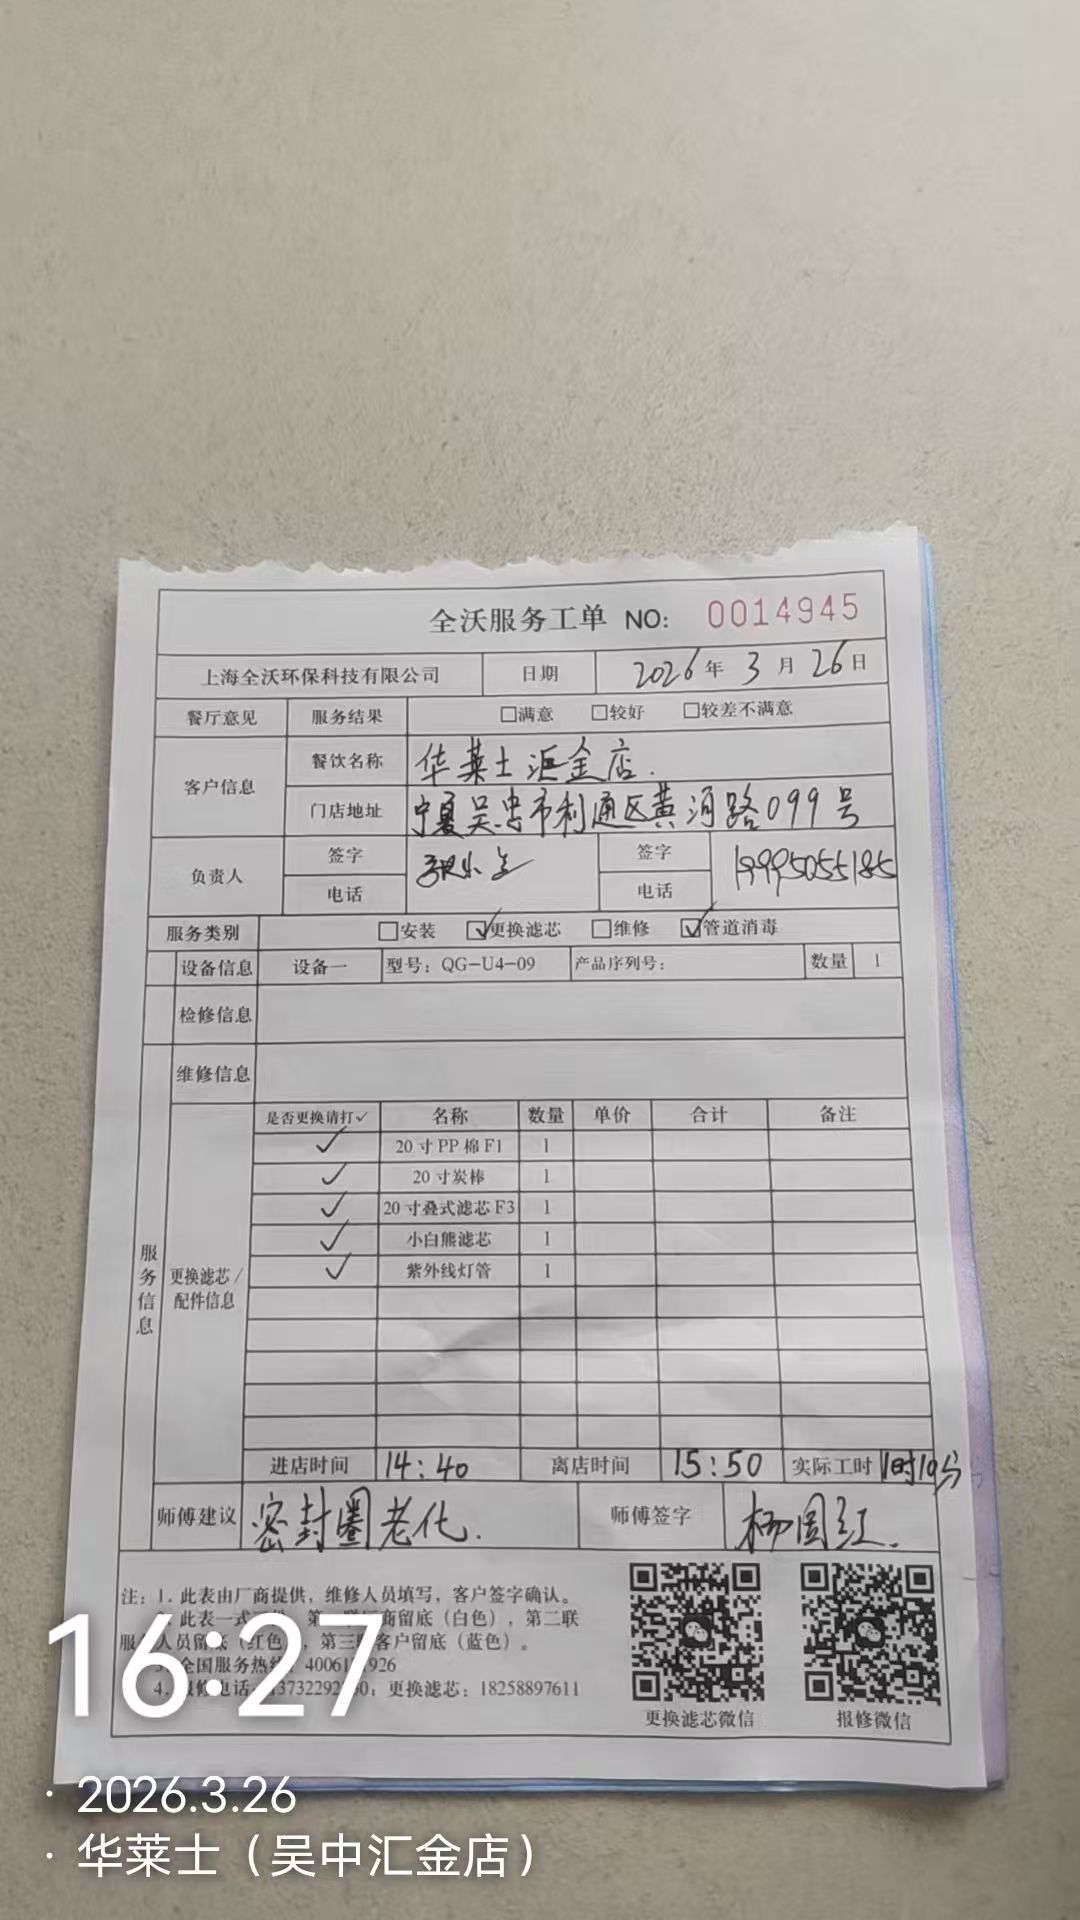 全沃服务工单 NO: 0014945
上海全沃环保科技有限公司 日期 2026年 3月 26日
餐厅意见 服务结果 □满意 □较好 □较差不满意
客户信息 餐饮名称 华莱士汇金店.
门店地址 宁夏吴忠市利通区黄河路099号
负责人 签字 签字
电话 电话 19995055185
服务类别 □安装 ☑更换滤芯 □维修 ☑管道消毒
设备信息 设备一 型号：QG-U4-09 产品序列号： 数量 1
检修信息
维修信息
服务信息
更换滤芯/配件信息
是否更换请打✓ 名称 数量 单价 合计 备注
✓ 20寸PP棉F1 1
✓ 20寸炭棒 1
✓ 20寸叠式滤芯F3 1
✓ 小白熊滤芯 1
✓ 紫外线灯管 1
进店时间 14:40 离店时间 15:50 实际工时 1时10分
师傅建议 密封圈老化. 师傅签字 杨圆红.
注：1. 此表由厂商提供，维修人员填写，客户签字确认。
此表一式 第 商留底（白色），第二联
服 人员留底（红色），第三联客户留底（蓝色）。
全国服务热线 40061 926
4. 报修电话 13732292 0；更换滤芯：18258897611
更换滤芯微信 报修微信
16:27
· 2026.3.26
· 华莱士（吴中汇金店）